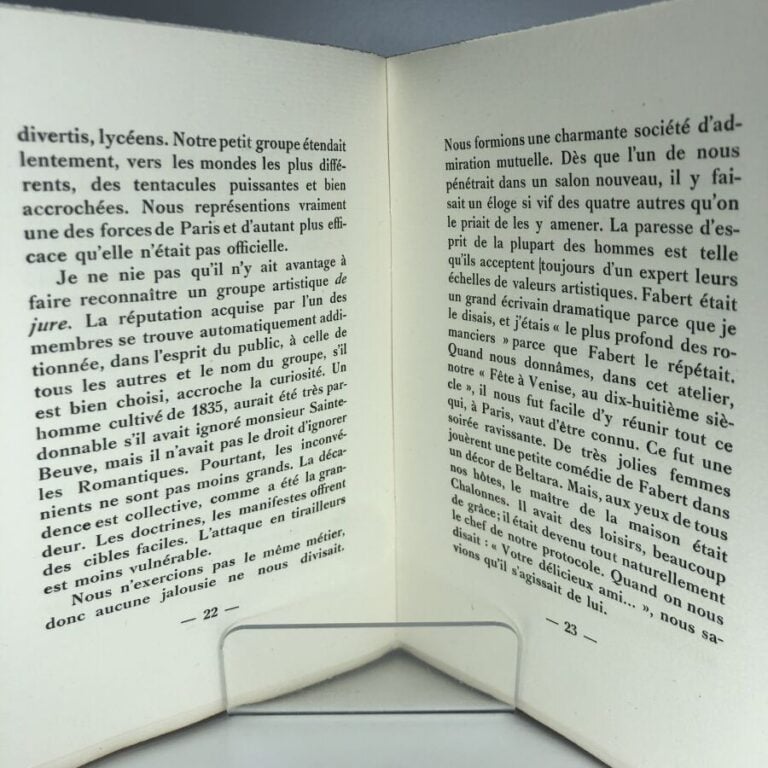 divertis, lycéens. Notre petit groupe étendait
lentement, vers les mondes les plus diffé-
rents, des tentacules puissantes et bien
accrochées. Nous représentions vraiment
une des forces de Paris et d'autant plus effi-
cace qu'elle n'était pas officielle.
Je ne nie pas qu'il n'y ait avantage à
faire reconnaître un groupe artistique de
jure. La réputation acquise par l'un des
membres se trouve automatiquement addi-
tionnée, dans l'esprit du public, à celle de
tous les autres et le nom du groupe, s'il
est bien choisi, accroche la curiosité. Un
homme cultivé de 1835, aurait été très par-
donnable s'il avait ignoré monsieur Sainte-
Beuve, mais il n'avait pas le droit d'ignorer
les Romantiques. Pourtant, les inconvé-
nients ne sont pas moins grands. La déca-
dence est collective, comme a été la gran-
deur. Les doctrines, les manifestes offrent
des cibles faciles. L'attaque en tirailleurs
est moins vulnérable.
Nous n'exercions pas le même métier,
donc aucune jalousie ne nous divisait.
— 22 —
Nous formions une charmante société d'ad-
miration mutuelle. Dès que l'un de nous
pénétrait dans un salon nouveau, il y fai-
sait un éloge si vif des quatre autres qu'on
le priait de les y amener. La paresse d'es-
prit de la plupart des hommes est telle
qu'ils acceptent toujours d'un expert leurs
échelles de valeurs artistiques. Fabert était
un grand écrivain dramatique parce que je
le disais, et j'étais « le plus profond des ro-
manciers » parce que Fabert le répétait.
Quand nous donnâmes, dans cet atelier,
notre « Fête à Venise, au dix-huitième siè-
cle », il nous fut facile d'y réunir tout ce
qui, à Paris, vaut d'être connu. Ce fut une
soirée ravissante. De très jolies femmes
jouèrent une petite comédie de Fabert dans
un décor de Beltara. Mais, aux yeux de tous
nos hôtes, le maître de la maison était
Chalonnes. Il avait des loisirs, beaucoup
de grâce; il était devenu tout naturellement
le chef de notre protocole. Quand on nous
disait : « Votre délicieux ami... », nous sa-
vions qu'il s'agissait de lui.
— 23 —